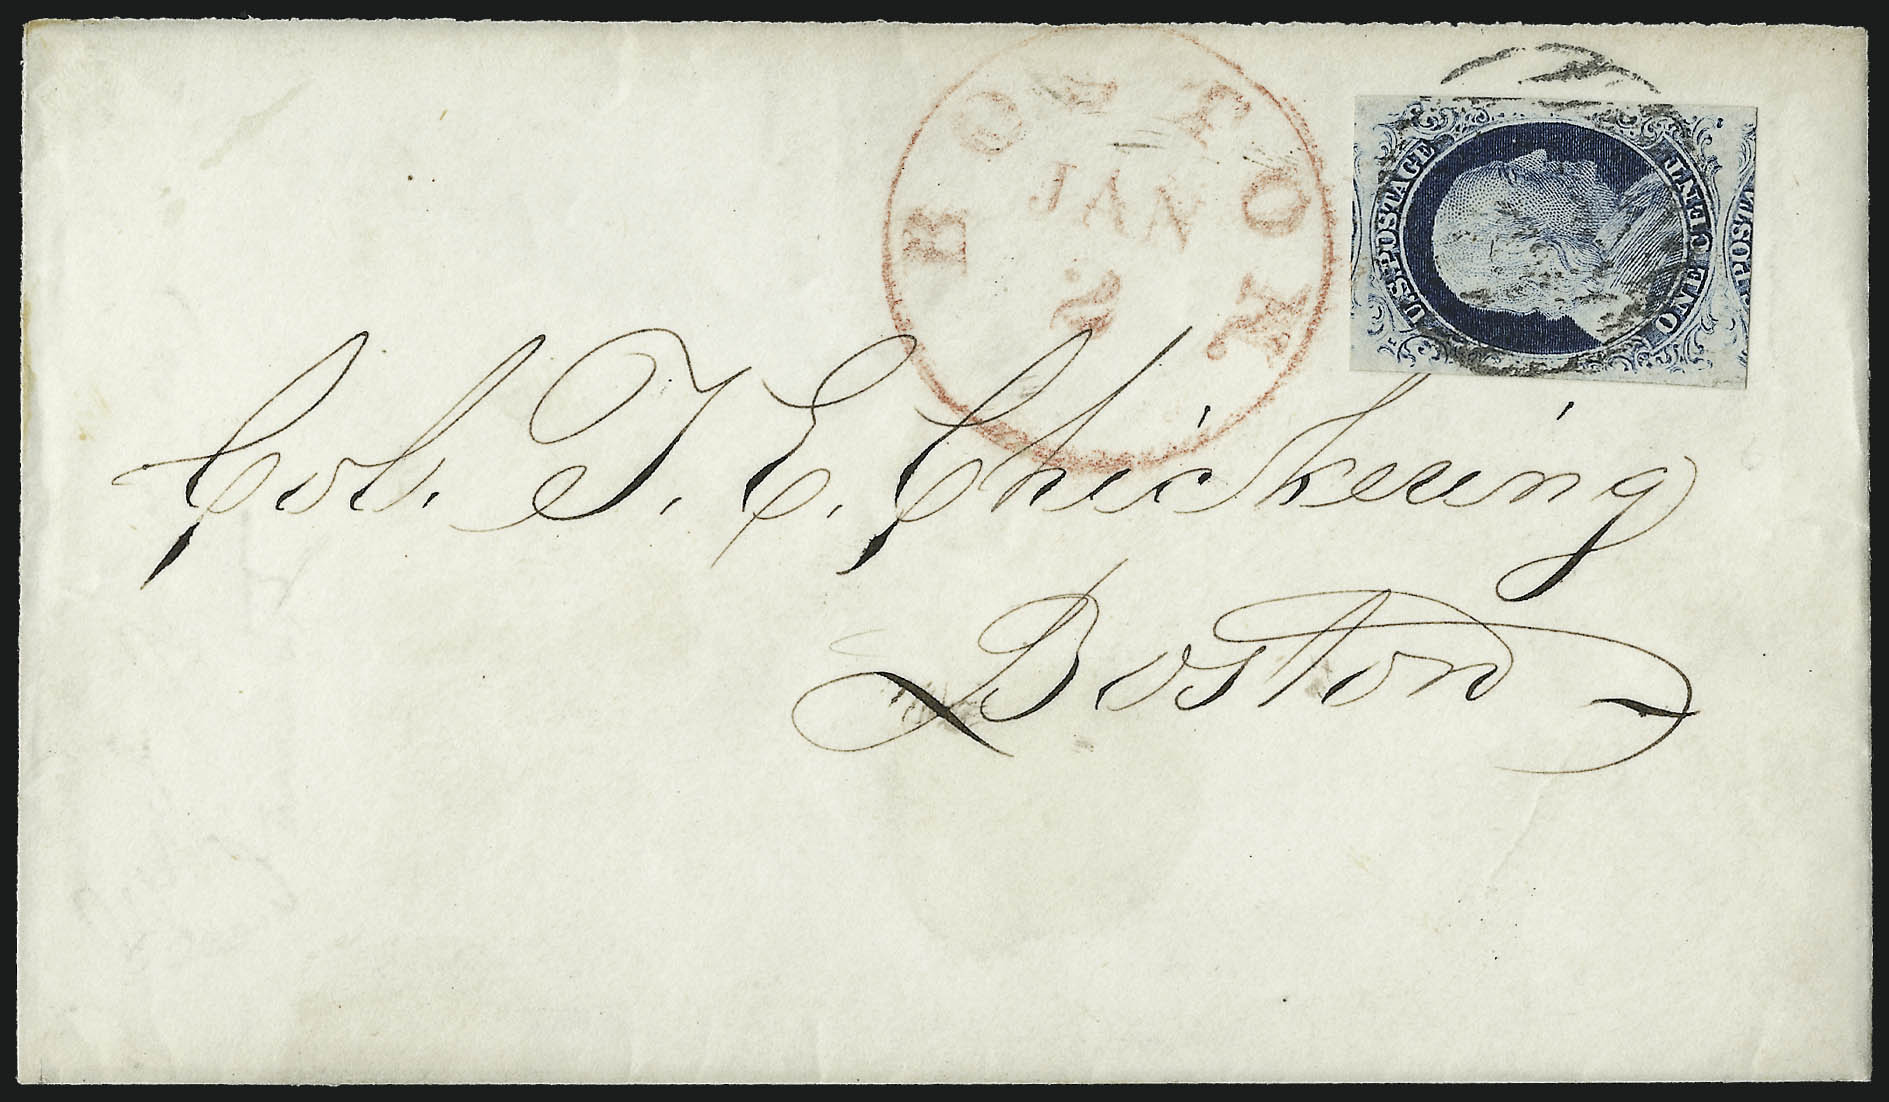 BOSTON
JAN
2
U.S. POSTAGE
ONE CENT
POSTA
Col. T. E. Chickering
Boston